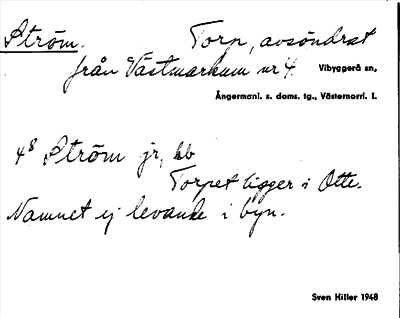 Ström. Torp, avsöndrat
från Västmarkum nr 4. Vibyggerå sn,
Ångermanl. s. doms. tg., Västernorrl. l.
4⁸ Ström jr, bb
Torpet ligger i Otte.
Namnet ej levande i byn.
Sven Hiller 1948